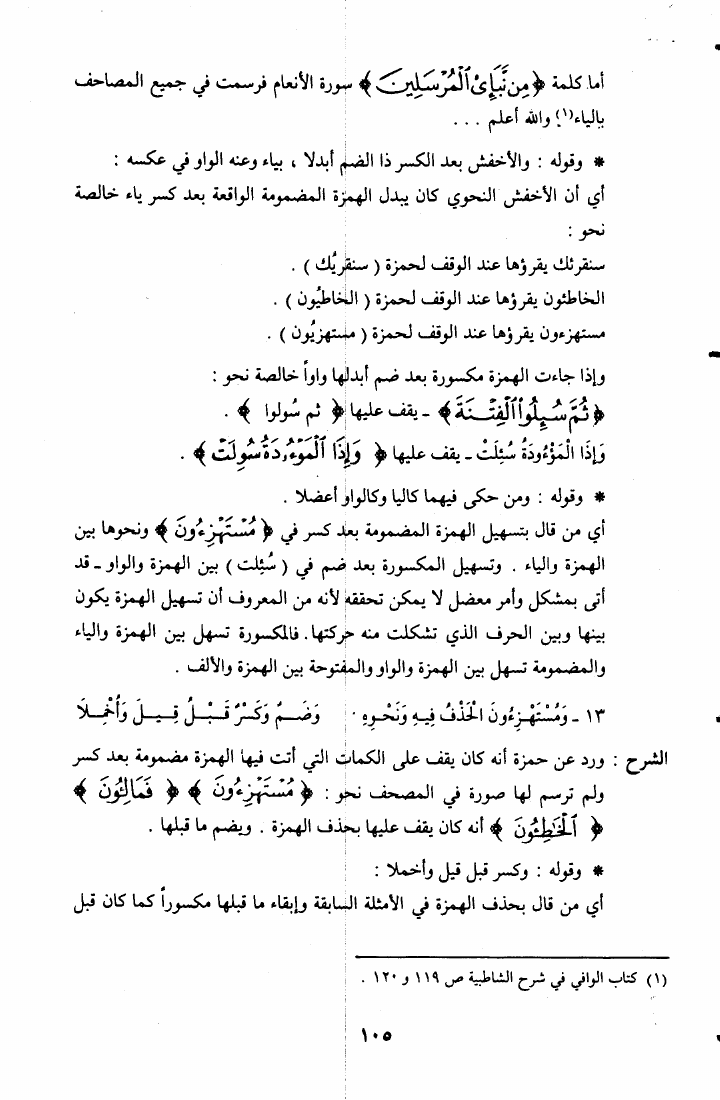 أما كلمة ﴿ مِن نَّبَإِىْ ٱلْمُرْسَلِينَ ﴾ سورة الأنعام فرسمت في جميع المصاحف
بالياء(١) والله أعلم ...
* وقوله : والأخفش بعد الكسر ذا الضم أبدلا ، بياء وعنه الواو في عكسه :
أي أن الأخفش النحوي كان يبدل الهمزة المضمومة الواقعة بعد كسر ياء خالصة
نحو :
سنقرئك يقرؤها عند الوقف لحمزة ( سنقريُك ) .
الخاطئون يقرؤها عند الوقف لحمزة ( الخاطيُون ) .
مستهزءون يقرؤها عند الوقف لحمزة ( مستهزيُون ) .
وإذا جاءت الهمزة مكسورة بعد ضم أبدلها واواً خالصة نحو :
﴿ ثُمَّ سُئِلُوا۟ ٱلْفِتْنَةَ ﴾ ـ يقف عليها ﴿ ثم سُولوا ﴾ .
وَإِذَا الْمَؤْءُودَةُ سُئِلَتْ ـ يقف عليها ﴿ وَإِذَا ٱلْمَوْءُودَةُ سُوِلَتْ ﴾ .
* وقوله : ومن حكى فيهما كاليا وكالواو أعضلا .
أي من قال بتسهيل الهمزة المضمومة بعد كسر في ﴿ مُسْتَهْزِءُونَ ﴾ ونحوها بين
الهمزة والياء . وتسهيل المكسورة بعد ضم في ( سُئِلت ) بين الهمزة والواو ـ قد
أتى بمشكل وأمر معضل لا يمكن تحققه لأنه من المعروف أن تسهيل الهمزة يكون
بينها وبين الحرف الذي تشكلت منه حركتها. فالمكسورة تسهل بين الهمزة والياء
والمضمومة تسهل بين الهمزة والواو والمفتوحة بين الهمزة والألف .
١٣ ـ وَمُسْتَهْزِءُونَ الْحَذْفُ فِيهِ وَنَحْوِهِ وَضَمٌّ وَكَسْرٌ قَبْلُ قِيلَ وَأُخْمِلَا
الشرح : ورد عن حمزة أنه كان يقف على الكمات التي أتت فيها الهمزة مضمومة بعد كسر
ولم ترسم لها صورة في المصحف نحو : ﴿ مُسْتَهْزِءُونَ ﴾ ﴿ فَمَالِـُٔونَ ﴾
﴿ ٱلْخَٰطِـُٔونَ ﴾ أنه كان يقف عليها بحذف الهمزة . ويضم ما قبلها .
* وقوله : وكسر قبل قيل وأخملا :
أي من قال بحذف الهمزة في الأمثلة السابقة وإبقاء ما قبلها مكسوراً كما كان قبل
(١) كتاب الوافي في شرح الشاطبية ص ١١٩ و ١٢٠ .
١٠٥